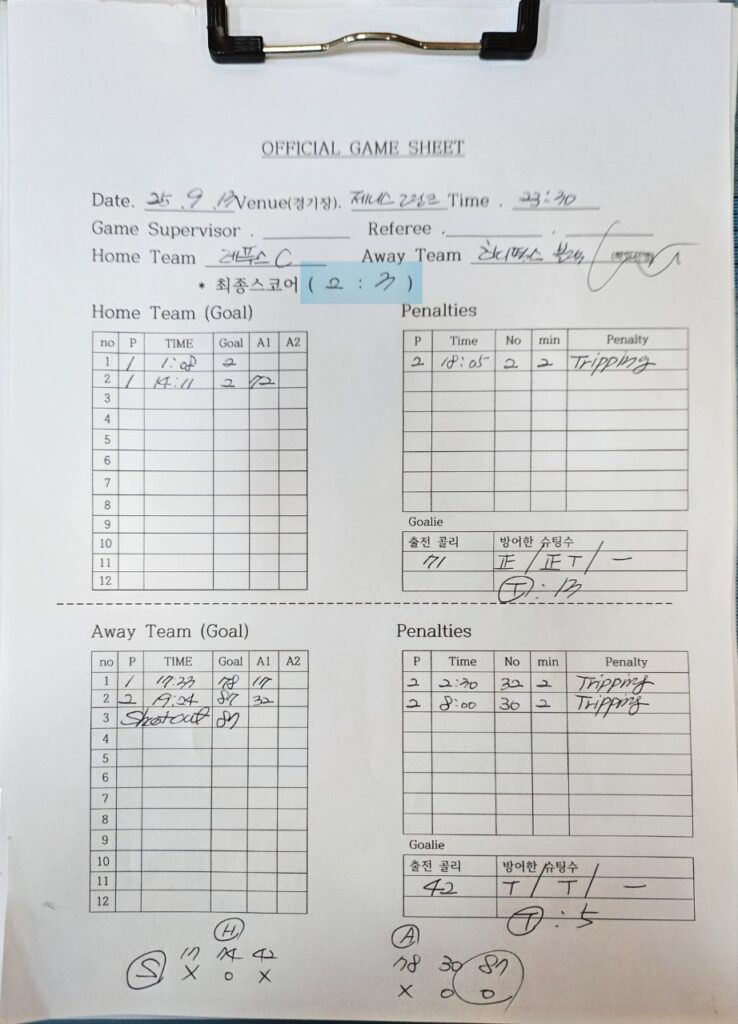 OFFICIAL GAME SHEET
Date. 25 . 9 . 13 Venue(경기장). 제니스 링크 Time . 23:30
Game Supervisor . Referee . .
Home Team 레푸스 C Away Team 블랙
* 최종스코어 ( 2 : 3 )
Home Team (Goal) Penalties
no P TIME Goal A1 A2 P Time No min Penalty
1 1 1:08 2 2 18:05 2 2 Tripping
2 1 14:11 2 72
3
4
5
6
7
8
9 Goalie
10 출전 골리 방어한 슈팅수
11 71 正 / 正 T / 一
12 T : 13
Away Team (Goal) Penalties
no P TIME Goal A1 A2 P Time No min Penalty
1 1 17:33 78 17 2 2:30 32 2 Tripping
2 2 19:24 87 32 2 8:00 30 2 Tripping
3 Shotout 87
4
5
6
7
8
9 Goalie
10 출전 골리 방어한 슈팅수
11 42 T / T / 一
12 T : 5
H A
S 17 74 42 78 30 87
X O X X O O